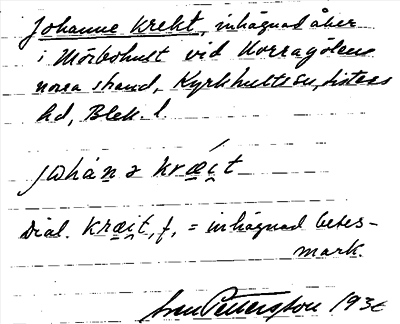 Johanne krekt, inhägnad åker
i Mörbohult vid Korragölens
norra strand, Kyrkhults sn, Listers
hd, Blek. l.
johán ə kræ̂i̯t
Dial. kræi̯t, f, = inhägnad betes-
mark.
Sven Pettersson 193